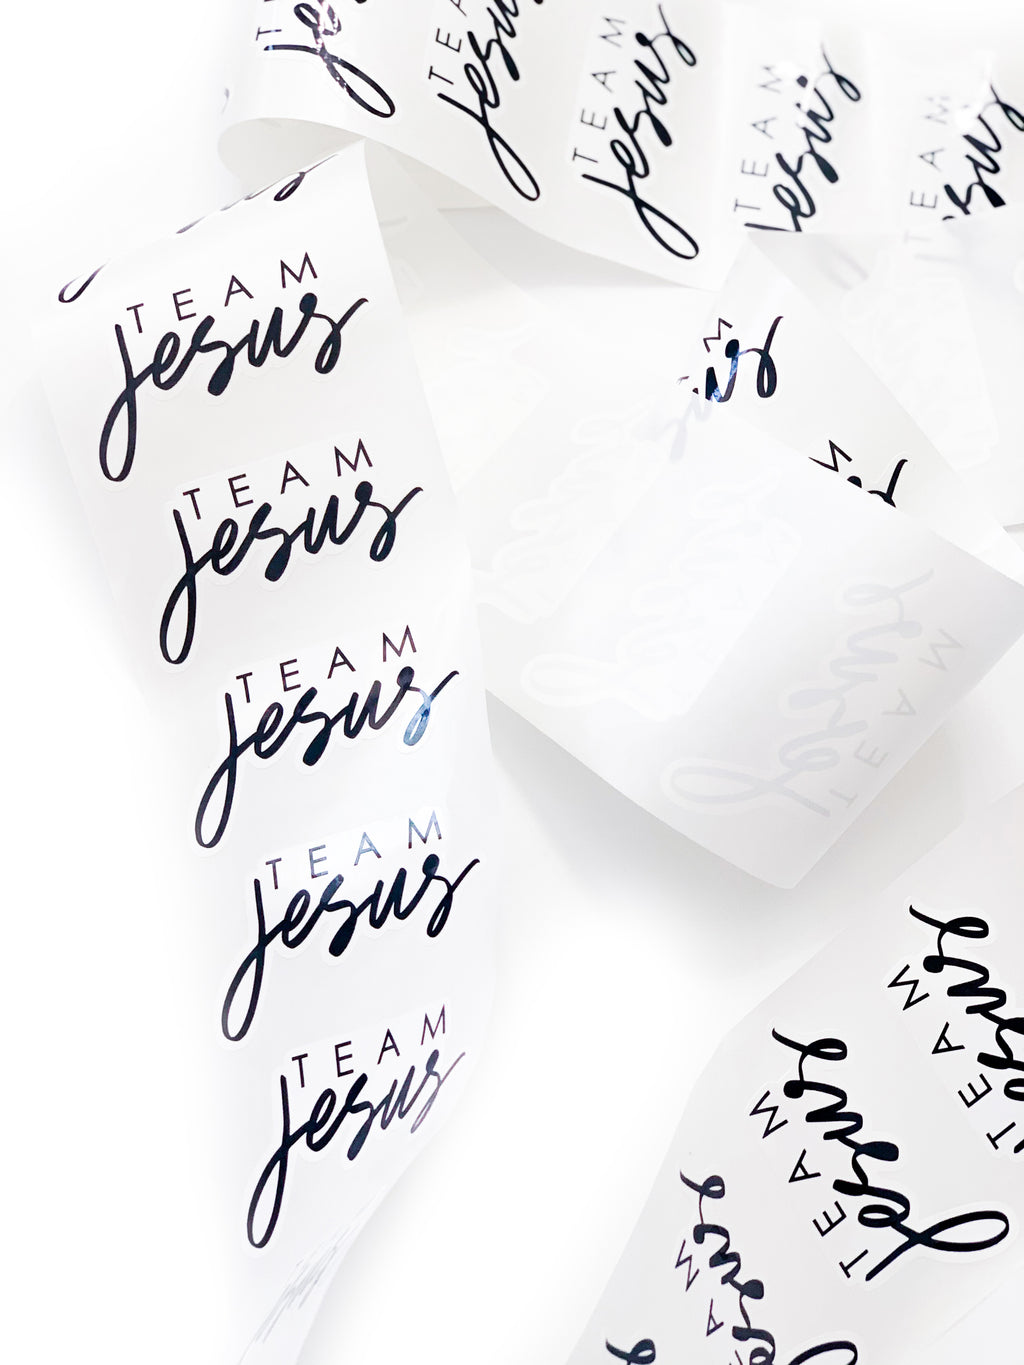 TEAM
Jesus
TEAM
Jesus
TEAM
Jesus
TEAM
Jesus
TEAM
Jesus
TEAM
Jesus
TEAM
Jesus
TEAM
Jesus
TEAM
Jesus
TEAM
Jesus
TEAM
Jesus
TEAM
Jesus
TEAM
Jesus